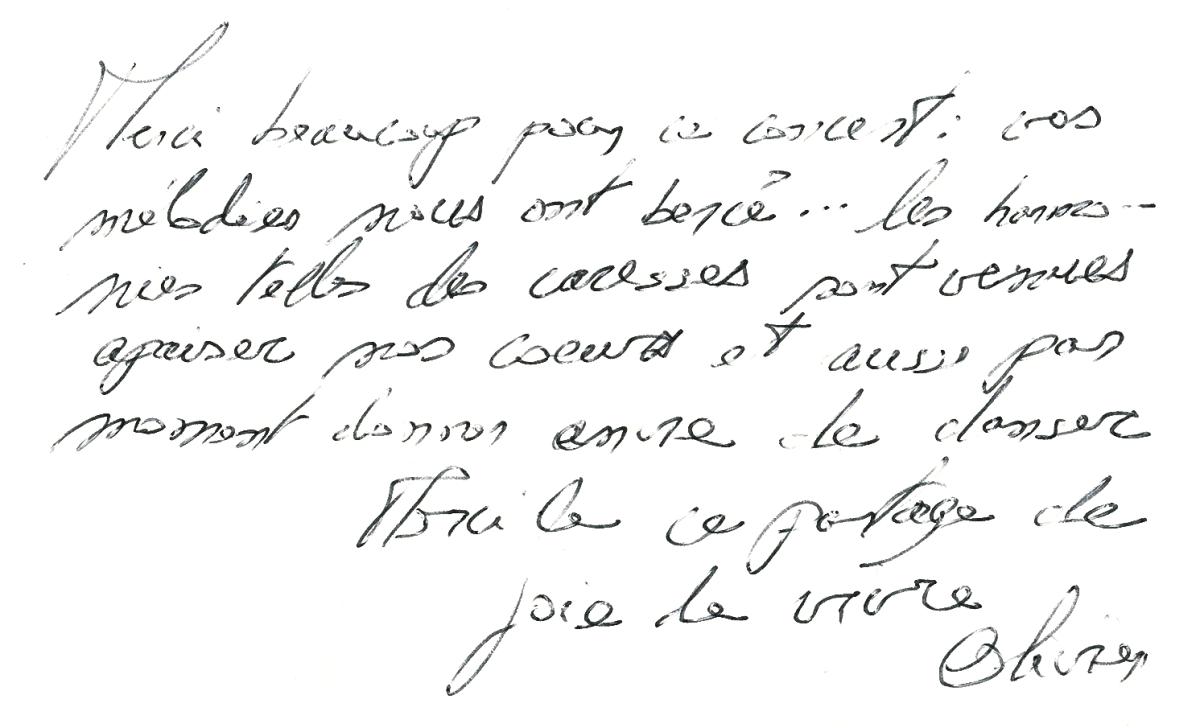 Merci beaucoup pour ce concert : vos
mélodies nous ont bercé... les harmo-
nies telles des caresses sont venues
apaiser nos coeurs et aussi par
moment donner envie de danser
Merci de ce partage de
joie de vivre
Olivier